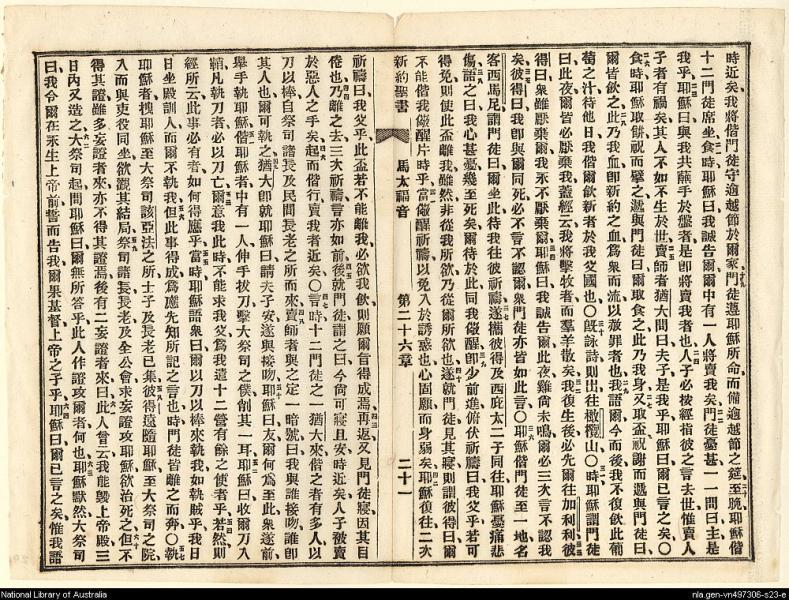 時近矣我將偕門徒守逾越節於爾家門徒遵耶穌所命而備逾越節之筵至晚耶穌偕
十二門徒席坐食時耶穌曰我誠告爾爾中有一人將賣我矣門徒憂甚一一問曰主是
我乎耶穌曰與我共蘸手於盤者是即將賣我者也人子必按經指彼之言去世惟賣人
子者有禍矣其人不如不生於世賣師者猶大問曰夫子是我乎耶穌曰爾已言之矣〇
食時耶穌取餅祝而擘之遞與門徒曰爾取食之此乃我身又取盃祝謝而遞與門徒曰
爾皆飲之此乃我血即新約之血爲衆而流以赦罪者也我語爾今而後我不復飲此葡
萄之汁待他日我偕爾飲新者於我父國也〇既詠詩則出往橄欖山〇時耶穌謂門徒
曰此夜爾皆必厭棄我蓋經云我將擊牧者而羣羊散矣我復生後必先爾往加利利彼
得曰衆雖厭棄爾我永不厭棄爾耶穌曰我誠告爾此夜雞尚未鳴爾必三次言不認我
矣彼得曰我卽與爾同死必不言不認爾衆門徒亦皆如此言〇耶穌偕門徒至一地名
客西馬尼謂門徒曰爾坐此待我往彼祈禱遂攜彼得及西庇太二子同往耶穌憂痛悲
傷語之曰我心甚憂幾至死矣爾待於此同我儆醒卽少前進俯伏祈禱曰我父乎若可
得免則使此盃離我雖然非從我所欲乃從爾所欲也遂就門徒見其寢則謂彼得曰爾
不能偕我儆醒片時乎當儆醒祈禱以免入於誘惑也心固願而身弱矣耶穌復往二次
新約聖書 馬太福音 第二十六章 二十一
祈禱曰我父乎此盃若不能離我必欲我飲則願爾旨得成焉再返又見門徒寢因其目
倦也乃離之去三次祈禱言亦如前後就門徒謂之曰今尚可寢且安時近矣人子被賣
於惡人之手矣起而偕行賣我者近矣〇言時十二門徒之一猶大來偕之者有多人以
刀以棒自祭司諸長及民間長老之所而來賣師者與之定一暗號曰我與誰接吻誰卽
其人也爾可執之猶大卽就耶穌曰請夫子安遂與接吻耶穌曰友爾何爲至此衆遂前
舉手執耶穌偕耶穌者中有一人伸手拔刀擊大祭司之僕削其一耳耶穌曰收爾刀入
鞘凡執刀者必以刀亡爾意我此時不能求我父爲我遣十二營有餘之使者乎若然則
經所云此事必有者如何得應乎當時耶穌語衆曰爾以刀以棒來執我如執賊乎我日
日坐殿訓人而爾不執我但此事得成爲應先知所記之言也時門徒皆離之而奔〇執
耶穌者拽耶穌至大祭司該亞法之所士子及長老已集彼得遠隨耶穌至大祭司之院
入而與吏役同坐欲觀其結局祭司諸長長老及全公會求妄證攻耶穌欲治死之但不
得其證雖多妄證者來亦不得其證焉後有二妄證者來曰此人嘗云我能毀上帝殿三
日內又造之大祭司起問耶穌曰爾無所答乎此人作證攻爾者何也耶穌默然大祭司
曰我令爾在永生上帝前誓而告我爾果基督上帝之子乎耶穌曰爾已言之矣惟我語
National Library of Australia
nla.gen-vn497306-s23-e